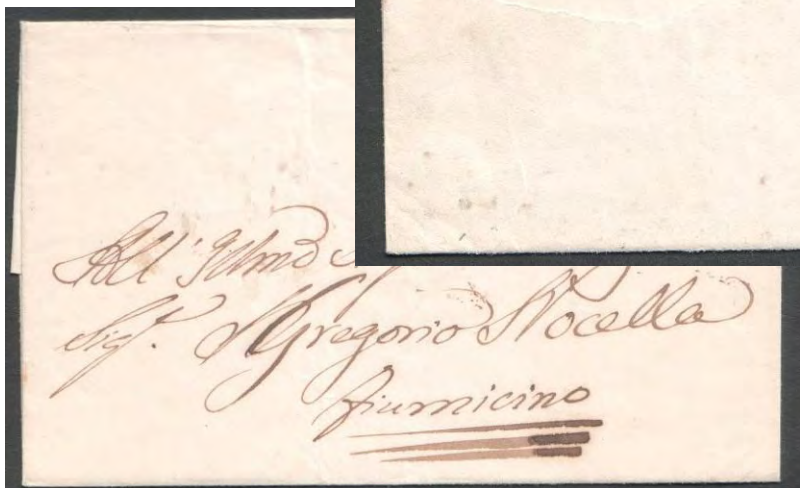 All' Illmo
Sig.r Gregorio Nocella
Fiumicino